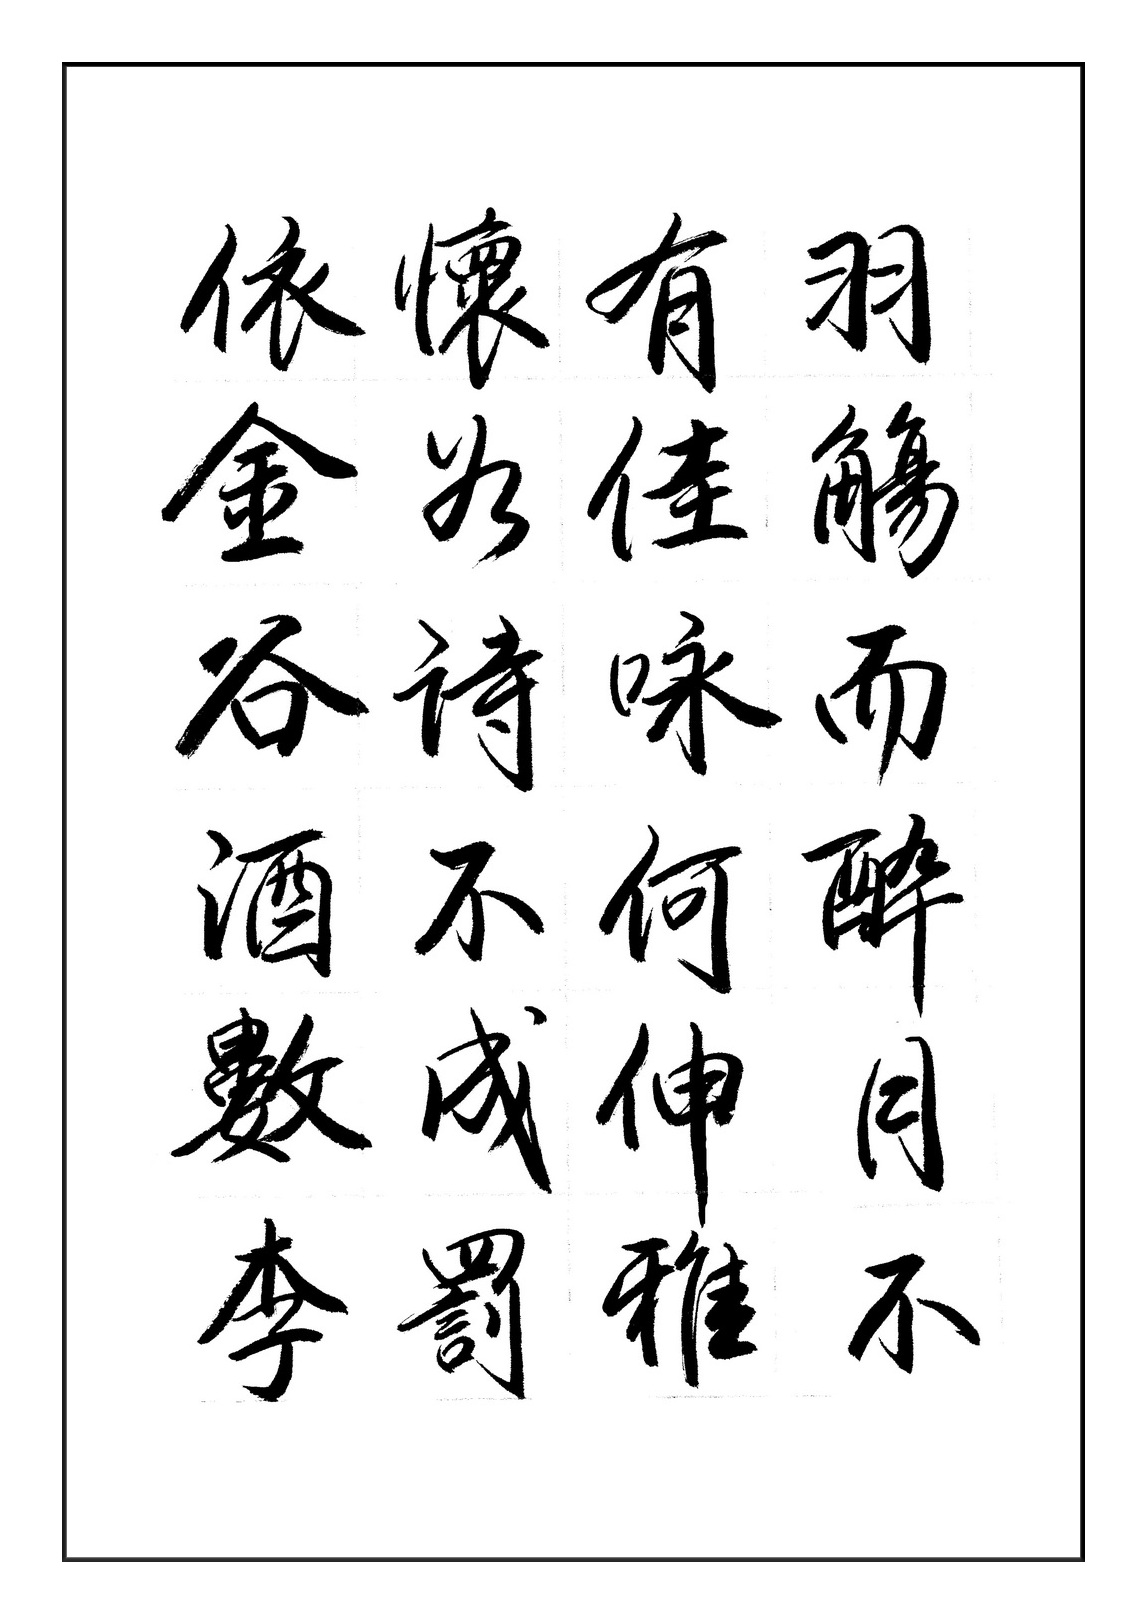 羽觴而醉月不
有佳咏何伸雅
懷如詩不成罰
依金谷酒數李